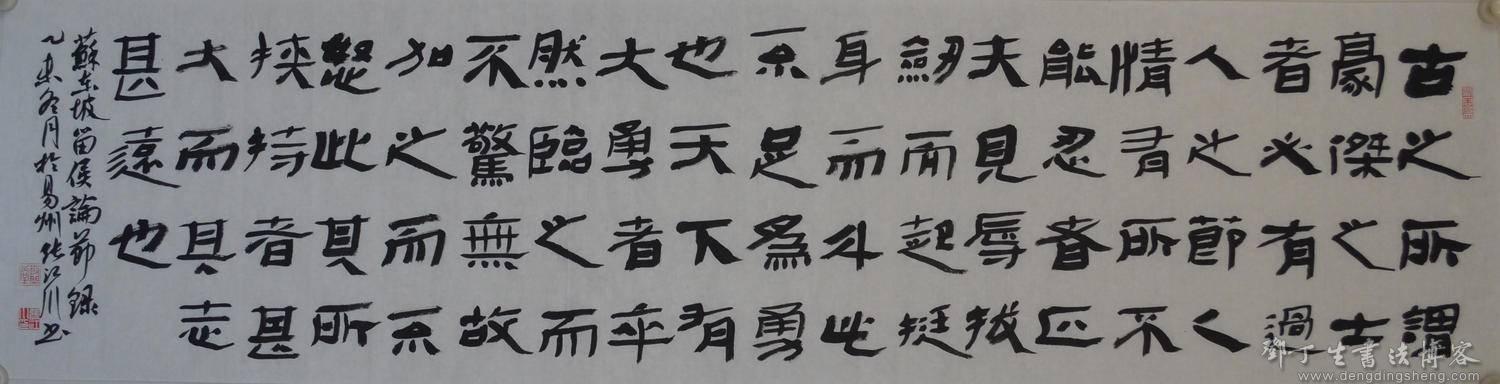 古之所謂
豪傑之士
者必有過
人之節人
情有所不
能忍者匹
夫見辱拔
劍而起挺
身而斗此
不足為勇
也天下有
大勇者卒
然臨之而
不驚無故
加之而不
怒此其所
挾持者甚
大而其志
甚遠也
蘇东坡留侯論節錄
乙未冬月於易州张江川书
鄧丁生書法博客
www.dengdingsheng.com